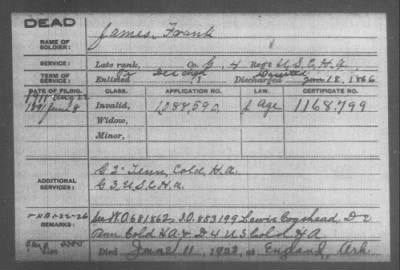 DEAD
NAME OF SOLDIER: James, Frank
SERVICE: Late rank, Co. G, 4 Reg't U.S.C.H.A.
TERM OF SERVICE: Enlisted 186 Discharged 18, 1866
DATE OF FILING. CLASS. APPLICATION NO. LAW. CERTIFICATE NO.
1911 Aug 22
1891 June 8 Invalid, 1,288,592 Age 1168,799
Widow,
Minor,
ADDITIONAL SERVICES: G 2" Tenn, Cold, H.A.
G 3, U.S.C.H.A.
REMARKS: W.O. 681862, I.O. 853199 Lewis Cogshead, D 2
Tenn Cold H A & D 4 U S Cold H A
Died June 11, 1922, at England, Ark.